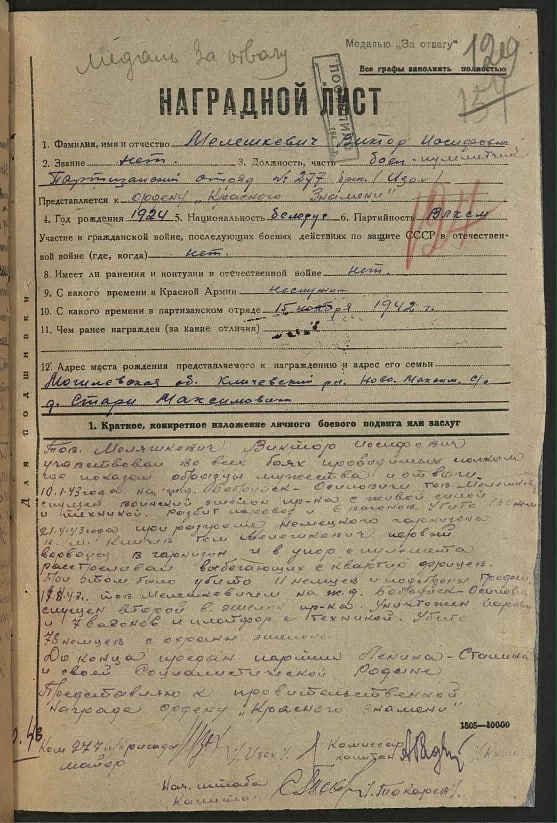 Медаль За отвагу
Медалью „За отвагу"
129
157
Все графы заполнять полностью
НАГРАДНОЙ ЛИСТ
1. Фамилия, имя и отчество Мелешкевич Виктор Иосифович
2. Звание нет. 3. Должность, часть боец-пулеметчик
Партизанский отряд № 277 бриг. (Изох)
Представляется к ордену „Красного Знамени"
4. Год рождения 1924 5. Национальность белорус 6. Партийность Влксм
Участие в гражданской войне, последующих боевых действиях по защите СССР в отечествен-
ной войне (где, когда) нет.
8. Имеет ли ранения и контузии в отечественной войне нет.
9. С какого времени в Красной Армии неслужил
10. С какого времени в партизанском отряде 15 1942 г.
11. Чем ранее награжден (за какие отличия)
12. Адрес места рождения представляемого к награждению и адрес его семьи
Могилевская об. Кличевский рн. Ново. Максим. С/с
д. Стари Максимович
Для подшивки
1. Краткое, конкретное изложение личного боевого подвига или заслуг
Тов. Моляшкевич Виктор Иосифович
участвовал во всех боях проводимых полком
где показал образцы мужества и отваги.
10.1.43года на жд. Бобруйск-Осиповичи тов. Мелешкевич
спущен воинский эшелон пр-ка с живой силой
и техникой. разбит паровоз и 6 вагонов. Убито
21.4.43года при разгроме немецкого гарнизона
в м. Кличев тов Мелешкевич первый
ворвался в гарнизон и в упор с пулемета
расстреливал выбегающих с квартир фрицев.
При этом было убито 11 немцев и подобраны трофеи
тов Мелешкевичем на ж.д. Бобруйск-Осипович
спущен второй в. эшелон пр-ка. Уничтожен паровоз
и 7 вагонов и платформ с техникой. Убито
78 немцев с охраны эшелона.
До конца предан партии Ленина-Сталина
и своей Социалистической Родине
Представляю к правительственной
награде ордену „Красного Знамени"
1505-10000
Ком 277 п. бригады /Изох/ Комиссар
майор капитан
Нач. штаба /Токарев/.
Капитан